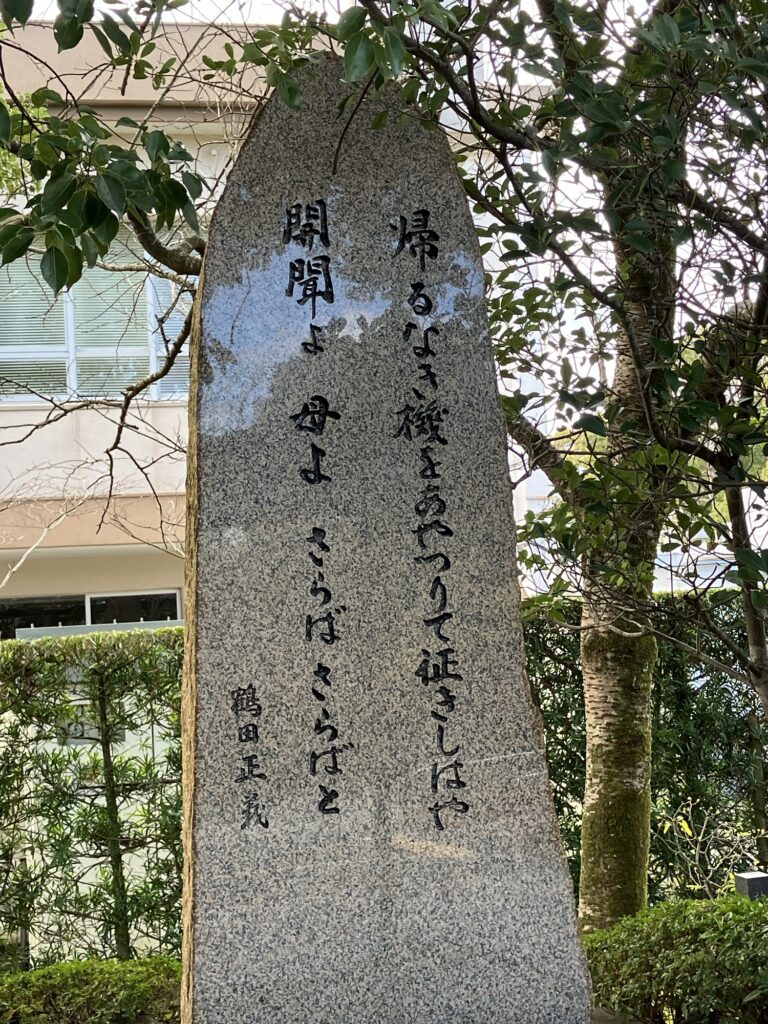 帰るなき機をあやつりて征きしはや
開聞よ 母よ さらばさらばと
鶴田正義